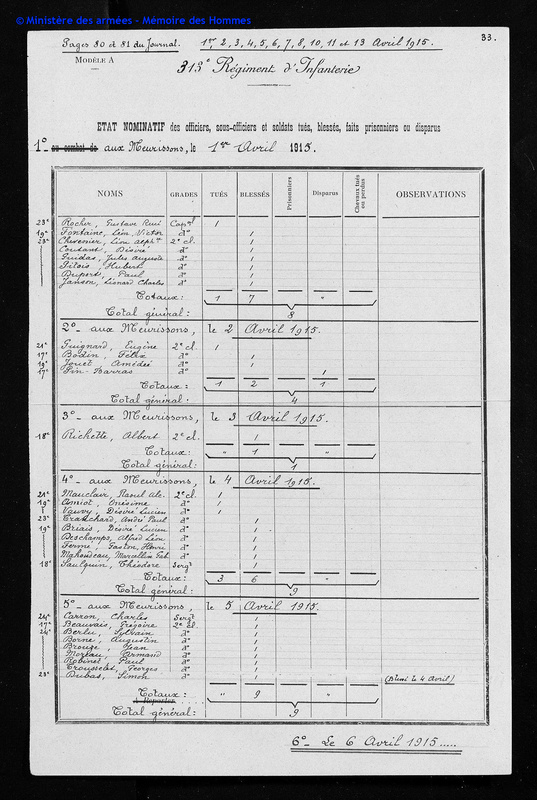 © Ministère des armées - Mémoire des Hommes
Pages 80 et 81 du Journal. 1er, 2, 3, 4, 5, 6, 7, 8, 10, 11 et 13 Avril 1915. 33.
MODÈLE A
313e Régiment d'Infanterie
ETAT NOMINATIF des officiers, sous-officiers et soldats tués, blessés, faits prisonniers ou disparus
1° au combat de aux Meurissons, le 1er Avril 1915.
NOMS GRADES TUÉS BLESSÉS Prisonniers Disparus Chevaux tués ou perdus OBSERVATIONS
23e Rocher, Gustave René Capal 1
19e Fontaine, Léon Victor do 1
23e Chevenier, Léon Alphte 2e cl. 1
Coutant, Désiré do 1
Guidas, Jules Auguste do 1
Pilois, Hubert do 1
Duport, Paul do 1
Janson, Léonard Charles do 1
Totaux: 1 7 "
Total général: 8
2° - aux Meurissons, le 2 Avril 1915.
21e Guignard, Eugène 2e cl. 1
17e Bodin, Félix do 1
19e Jouet, Amédée do 1
17e Fin-Barras do 1
Totaux: 1 2 1
Total général: 4
3° - aux Meurissons, le 3 Avril 1915.
18e Richette, Albert 2e cl. 1
Totaux: " 1 "
Total général: 1
4° - aux Meurissons, le 4 Avril 1915.
21e Mauclair, Raoul Ale. 2e cl. 1
19e Amiot, Onésime do 1
Vauvy, Désiré Lucien do 1
23e Tranchard, André Paul do 1
19e Briais, Désiré Lucien do 1
Deschamps, Alfred Léon do 1
Ferme, Gaston, Henri do 1
Mahoudeau, Marcellin Gab. do 1
18e Saulquin, Théodore Sergt 1
Totaux: 3 6 "
Total général: 9
5° - aux Meurissons, le 5 Avril 1915.
24e Carron, Charles Sergt 1
17e Beauvais, Grégoire 2e cl. 1
24e Berlu, Sylvain do 1
Borne, Augustin do 1
Brouge, Jean do 1
Moreau, Armand do 1
Robinet, Paul do 1
Trousselet, Georges do 1
23e Dubas, Simon do 1 (Blessé le 4 Avril)
Totaux: " 9 "
A Reporter
Total général: 9
6° - Le 6 Avril 1915.....